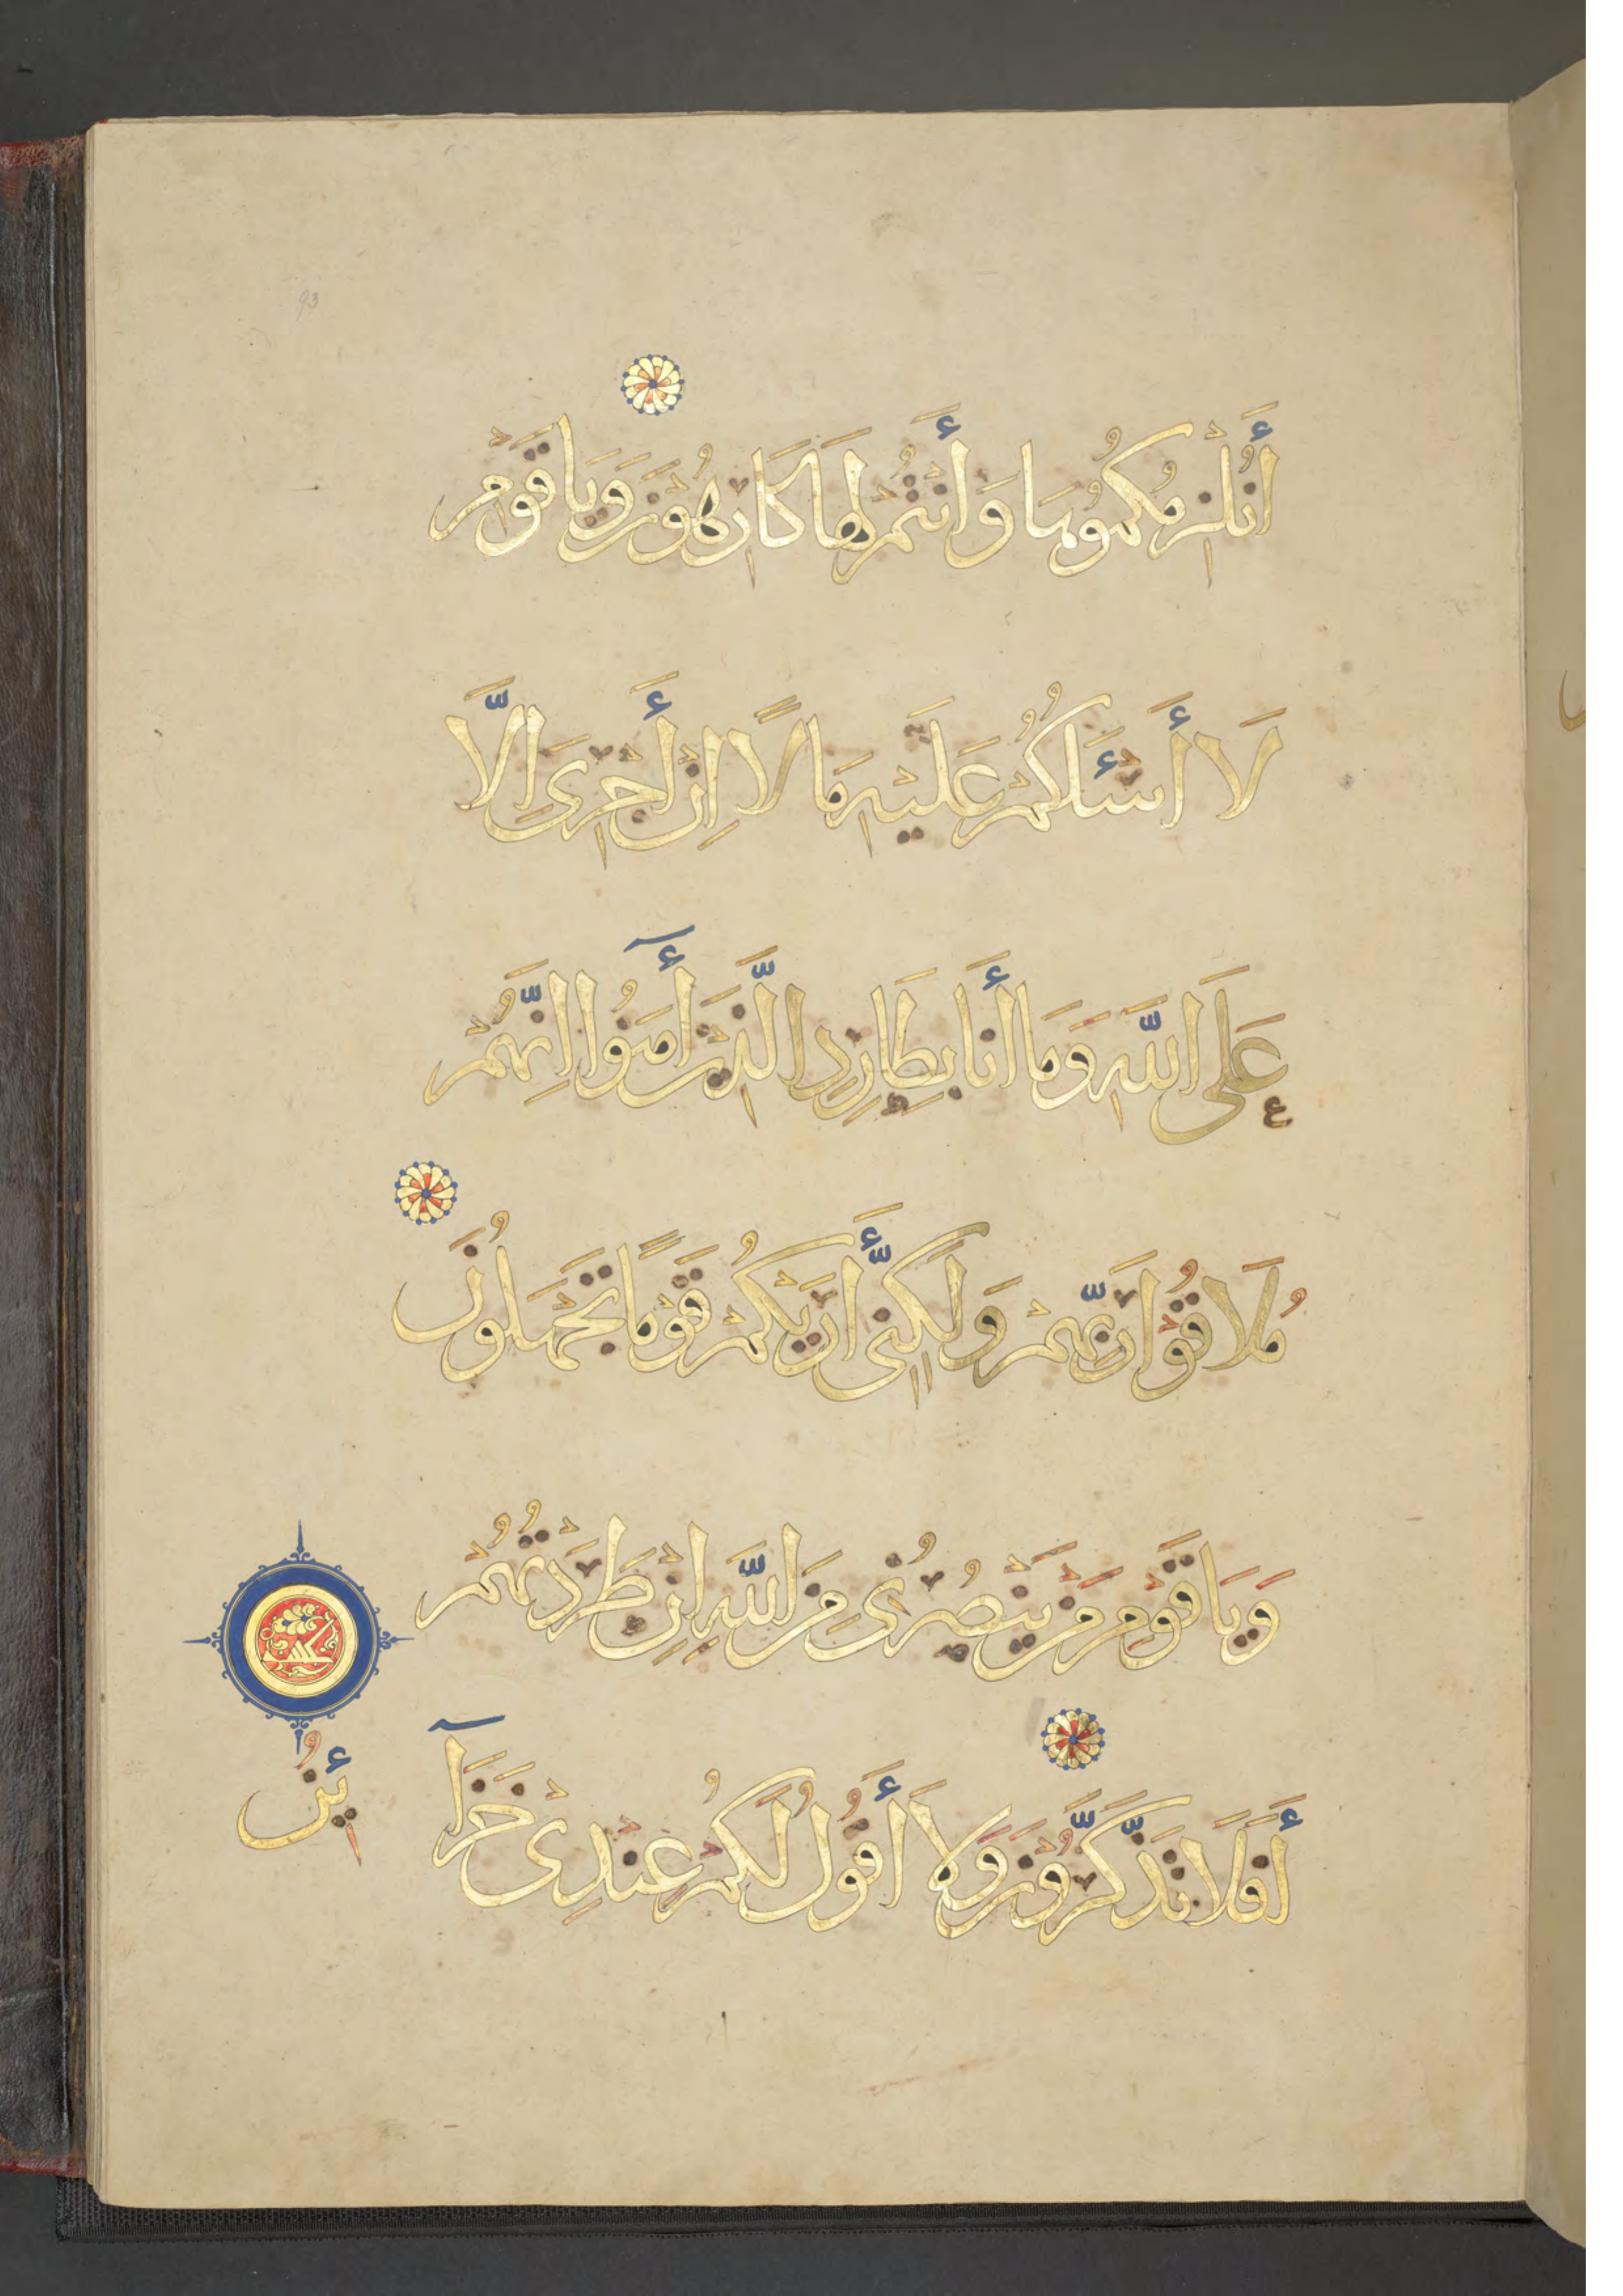 93
أَنُلْزِمُكُمُوهَا وَأَنْتُمْ لَهَا كَارِهُونَ وَيَا قَوْمِ
لَا أَسْئَلُكُمْ عَلَيْهِ مَالًا اِنْ أَجْرِىَ اِلَّا
عَلَى اللَّهِ وَمَا أَنَا بِطَارِدِ الَّذِينَ أَمَنُوا اِنَّهُمْ
مُلَاقُوا رَبِّهِمْ وَلَكِنِّى أَرَيكُمْ قَوْمًا تَجْهَلُونَ
وَيَا قَوْمِ مَنْ يَنْصُرُنِى مِنَ اللَّهِ اِنْ طَرَدْتُهُمْ
أَفَلَا تَذَّكَّرُونَ وَلَا أَقُولُ لَكُمْ عِنْدِى خَزَآ
ئِنُ